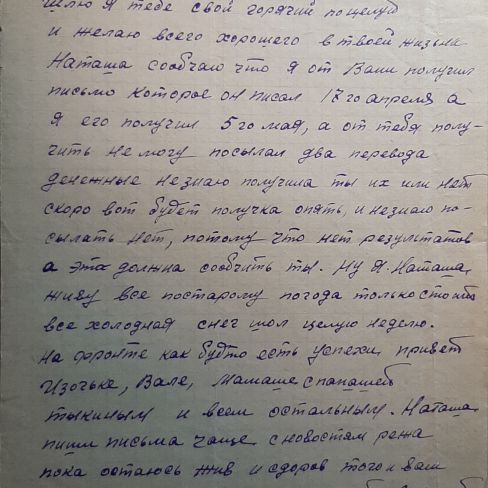 шлю я тебе свой горячий поцелуй
и желаю всего хорошего в твоей жизни
Наташа сообчаю что я от Вани получил
письмо которое он писал 17го апреля а
я его получил 5го мая, а от тебя полу-
чить не могу посылал два перевода
денежные незнаю получила ты их или нет
скоро вот будет получка опять, и незнаю по-
сылать нет, потому что нет результатов
а эта должна сообчить ты. Ну я. Наташа
живу все постарому погода только стоит
все холодная снег шол целую неделю.
на фронте как будто есть успехи, привет
Изочьке, Вале, Мамаше спапашей
тыкиным и всем остальным. Наташа
пиши письма чаще, с новостям
пока остаюсь жив и сдоров того и вам